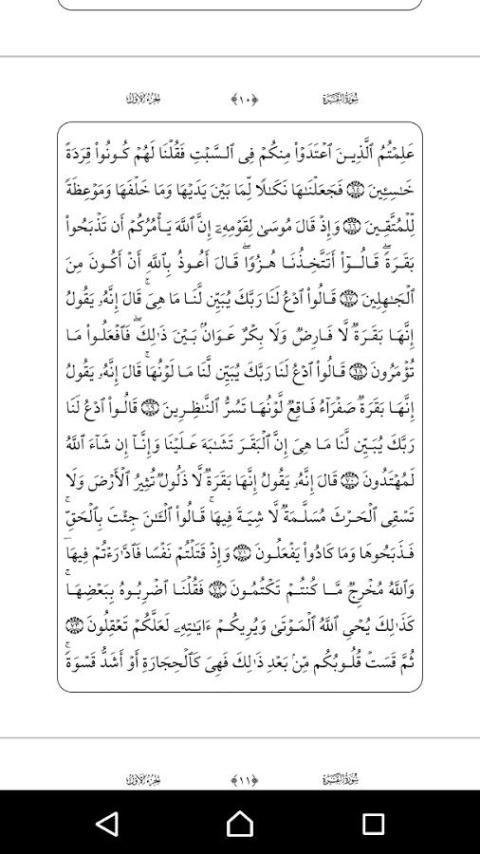 سُورَةُ البَقَرَةِ ﴿١٠﴾ الجُزءُ الأَوَّلُ
عَلِمْتُمُ ٱلَّذِينَ ٱعْتَدَوْا۟ مِنكُمْ فِى ٱلسَّبْتِ فَقُلْنَا لَهُمْ كُونُوا۟ قِرَدَةً
خَـٰسِـِٔينَ ۝٦٥ فَجَعَلْنَـٰهَا نَكَـٰلًا لِّمَا بَيْنَ يَدَيْهَا وَمَا خَلْفَهَا وَمَوْعِظَةً
لِّلْمُتَّقِينَ ۝٦٦ وَإِذْ قَالَ مُوسَىٰ لِقَوْمِهِۦٓ إِنَّ ٱللَّهَ يَأْمُرُكُمْ أَن تَذْبَحُوا۟
بَقَرَةً ۖ قَالُوٓا۟ أَتَتَّخِذُنَا هُزُوًا ۖ قَالَ أَعُوذُ بِٱللَّهِ أَنْ أَكُونَ مِنَ
ٱلْجَـٰهِلِينَ ۝٦٧ قَالُوا۟ ٱدْعُ لَنَا رَبَّكَ يُبَيِّن لَّنَا مَا هِىَ ۚ قَالَ إِنَّهُۥ يَقُولُ
إِنَّهَا بَقَرَةٌ لَّا فَارِضٌ وَلَا بِكْرٌ عَوَانٌۢ بَيْنَ ذَٰلِكَ ۖ فَٱفْعَلُوا۟ مَا
تُؤْمَرُونَ ۝٦٨ قَالُوا۟ ٱدْعُ لَنَا رَبَّكَ يُبَيِّن لَّنَا مَا لَوْنُهَا ۚ قَالَ إِنَّهُۥ يَقُولُ
إِنَّهَا بَقَرَةٌ صَفْرَآءُ فَاقِعٌ لَّوْنُهَا تَسُرُّ ٱلنَّـٰظِرِينَ ۝٦٩ قَالُوا۟ ٱدْعُ لَنَا
رَبَّكَ يُبَيِّن لَّنَا مَا هِىَ إِنَّ ٱلْبَقَرَ تَشَـٰبَهَ عَلَيْنَا وَإِنَّآ إِن شَآءَ ٱللَّهُ
لَمُهْتَدُونَ ۝٧٠ قَالَ إِنَّهُۥ يَقُولُ إِنَّهَا بَقَرَةٌ لَّا ذَلُولٌ تُثِيرُ ٱلْأَرْضَ وَلَا
تَسْقِى ٱلْحَرْثَ مُسَلَّمَةٌ لَّا شِيَةَ فِيهَا ۚ قَالُوا۟ ٱلْـَٔـٰنَ جِئْتَ بِٱلْحَقِّ ۚ
فَذَبَحُوهَا وَمَا كَادُوا۟ يَفْعَلُونَ ۝٧١ وَإِذْ قَتَلْتُمْ نَفْسًا فَٱدَّٰرَْٰٔتُمْ فِيهَا ۖ
وَٱللَّهُ مُخْرِجٌ مَّا كُنتُمْ تَكْتُمُونَ ۝٧٢ فَقُلْنَا ٱضْرِبُوهُ بِبَعْضِهَا ۚ
كَذَٰلِكَ يُحْىِ ٱللَّهُ ٱلْمَوْتَىٰ وَيُرِيكُمْ ءَايَـٰتِهِۦ لَعَلَّكُمْ تَعْقِلُونَ ۝٧٣
ثُمَّ قَسَتْ قُلُوبُكُم مِّنۢ بَعْدِ ذَٰلِكَ فَهِىَ كَٱلْحِجَارَةِ أَوْ أَشَدُّ قَسْوَةً ۚ
سُورَةُ البَقَرَةِ ﴿١١﴾ الجُزءُ الأَوَّلُ